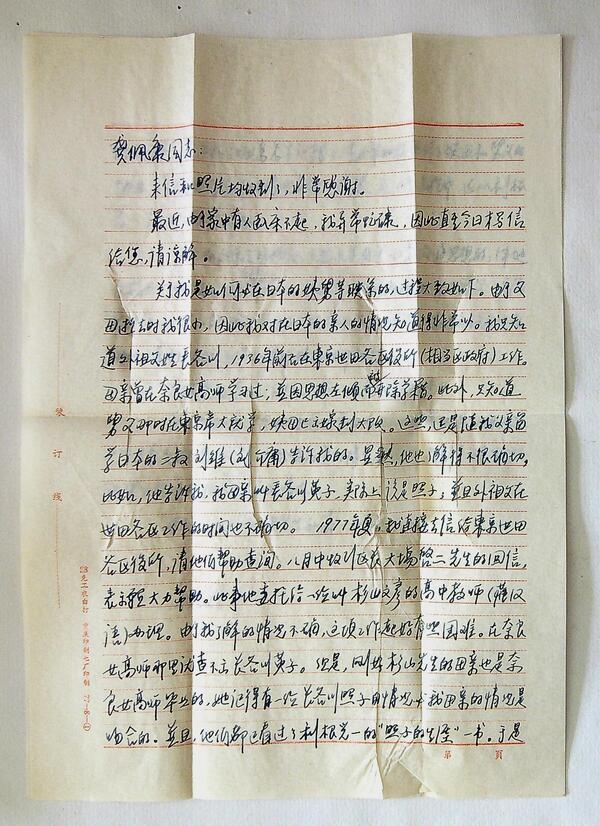 龚佩康同志：
来信和照片均收到了，非常感谢。
最近，由于家中有人卧床不起，我异常忙碌，因此直至今日才写信
给您，请谅解。
关于我是如何与在日本的姨舅等联系的，过程大致如下。由于父
母逝去时我很小，因此我对在日本的亲人的情况知道得非常少。我只知
道外祖父姓长谷川，1936年前后在东京世田谷区役所（相当区政府）工作。
母亲曾在奈良女高师学习过，并因思想左倾而被开除学籍。此外，只知道
舅父那时在东京帝大就学，姨母已出嫁到大阪。这些，还是随我父亲留
学日本的二叔刘维（刘介庸）告诉我的。显然，他也了解得不很确切。
比如，他告诉我，我母亲叫长谷川英子，实际上该是照子；并且外祖父在
世田谷区工作的时间也不确切。 1977年夏，我直接去信给东京世田
谷区役所，请他们帮助查询。八月中收到区长大场啓二先生的回信，
表示愿大力帮助。此事他委托给一位叫杉山文彦的高中教师（懂汉
语）办理。由于我了解的情况不确，这项工作起好有些困难。在奈良
女高师那里试查不出长谷川英子。但是，刚好杉山先生的母亲也是奈
良女高师毕业的，她记得有一位长谷川照子的情况与我母亲的情况是
吻合的。并且，他们都已看过了利根光一的“照子的生涯”一书。于是
装
订
线
第 页